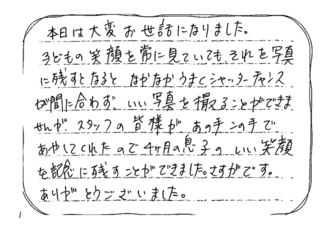 本日は大変お世話になりました。
子どもの笑顔を常に見ていても、それを写真
に残すとなると なかなかうまくシャッターチャンス
が間に合わず、いい写真を撮ることができま
せんが、スタッフの皆様が あの手この手で
あやしてくれたので4ヶ月の息子の いい笑顔
を記念に残すことができました。さすがです。
ありがとうございました。